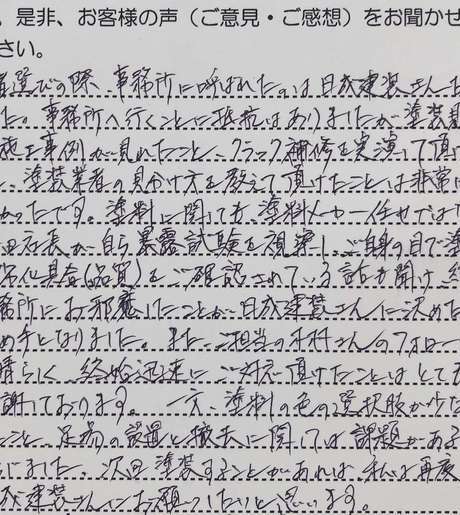 、是非、お客様の声（ご意見・ご感想）をお聞かせ
さい。
者選びの際、事務所に呼ばれたのは日成建装さんだ
た。事務所へ行くことに抵抗はありましたが塗装
施工事例が見れたこと、クラック補修を実演して頂
、塗装業者の見分け方を教えて頂けたことは非常
かったです。塗料に関しても、塗料メーカー任せでは
田社長が自ら暴露試験を視察し、ご自身の目で塗
劣化具合(品質)をご確認されている話も聞け、
務所にお邪魔したことが日成建装さんに決めた
め手となりました。また、ご担当の木村さんのフォロー
晴らしく、終始迅速にご対応頂けたことはとても
謝しております。一方、塗料の色の選択肢が少
こと、足場の設置と撤去に関しては課題がある
じました。次回塗装することがあれば、私は再度
成建装さんにお願いしたいと思います。